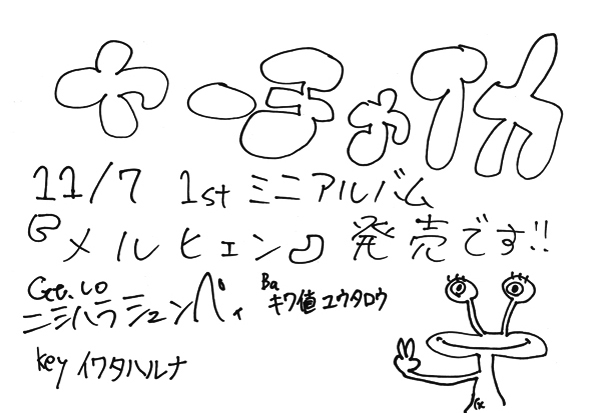 ヤーチャイカ
11/7 1st ミニアルバム
『メルヒェン』発売です!!
Gt.Vo
ニシハラシュンペイ
Ba
キワ値ユウタロウ
Key イワタハルナ